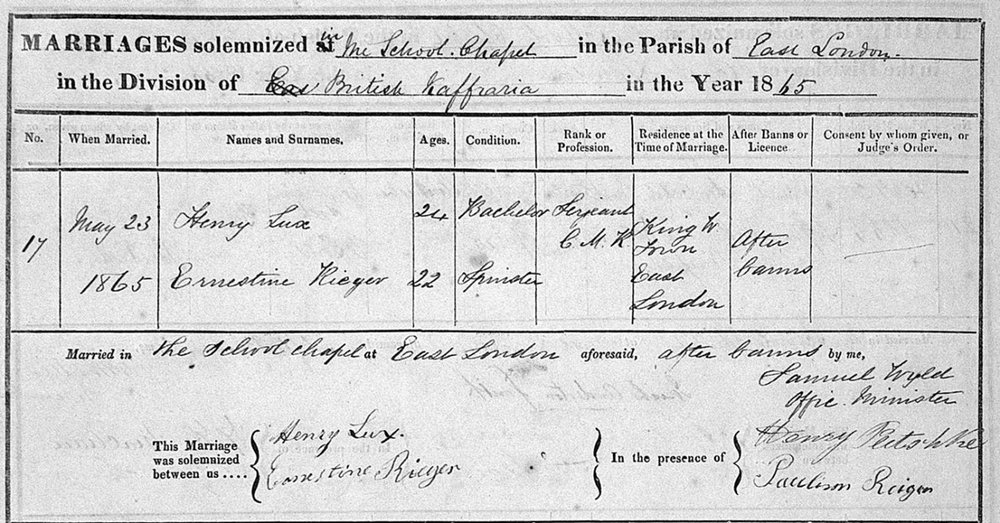 MARRIAGES solemnized in the School-Chapel in the Parish of East London.
in the Division of British Kaffraria in the Year 1865
No. When Married. Names and Surnames. Ages. Condition. Rank or Profession. Residence at the Time of Marriage. After Banns or Licence Consent by whom given, or Judge's Order.
17 May 23 1865
Henry Lux 24 Bachelor Sergeant C. M. R King W Town After banns
Ernestine Rieger 22 Spinster East London
Married in the School chapel at East London aforesaid, after banns by me,
Samuel Wyld
Offic. Minister
This Marriage was solemnized between us....
Henry Lux.
Ernestine Rieger
In the presence of
Henry
Paulison Reiger